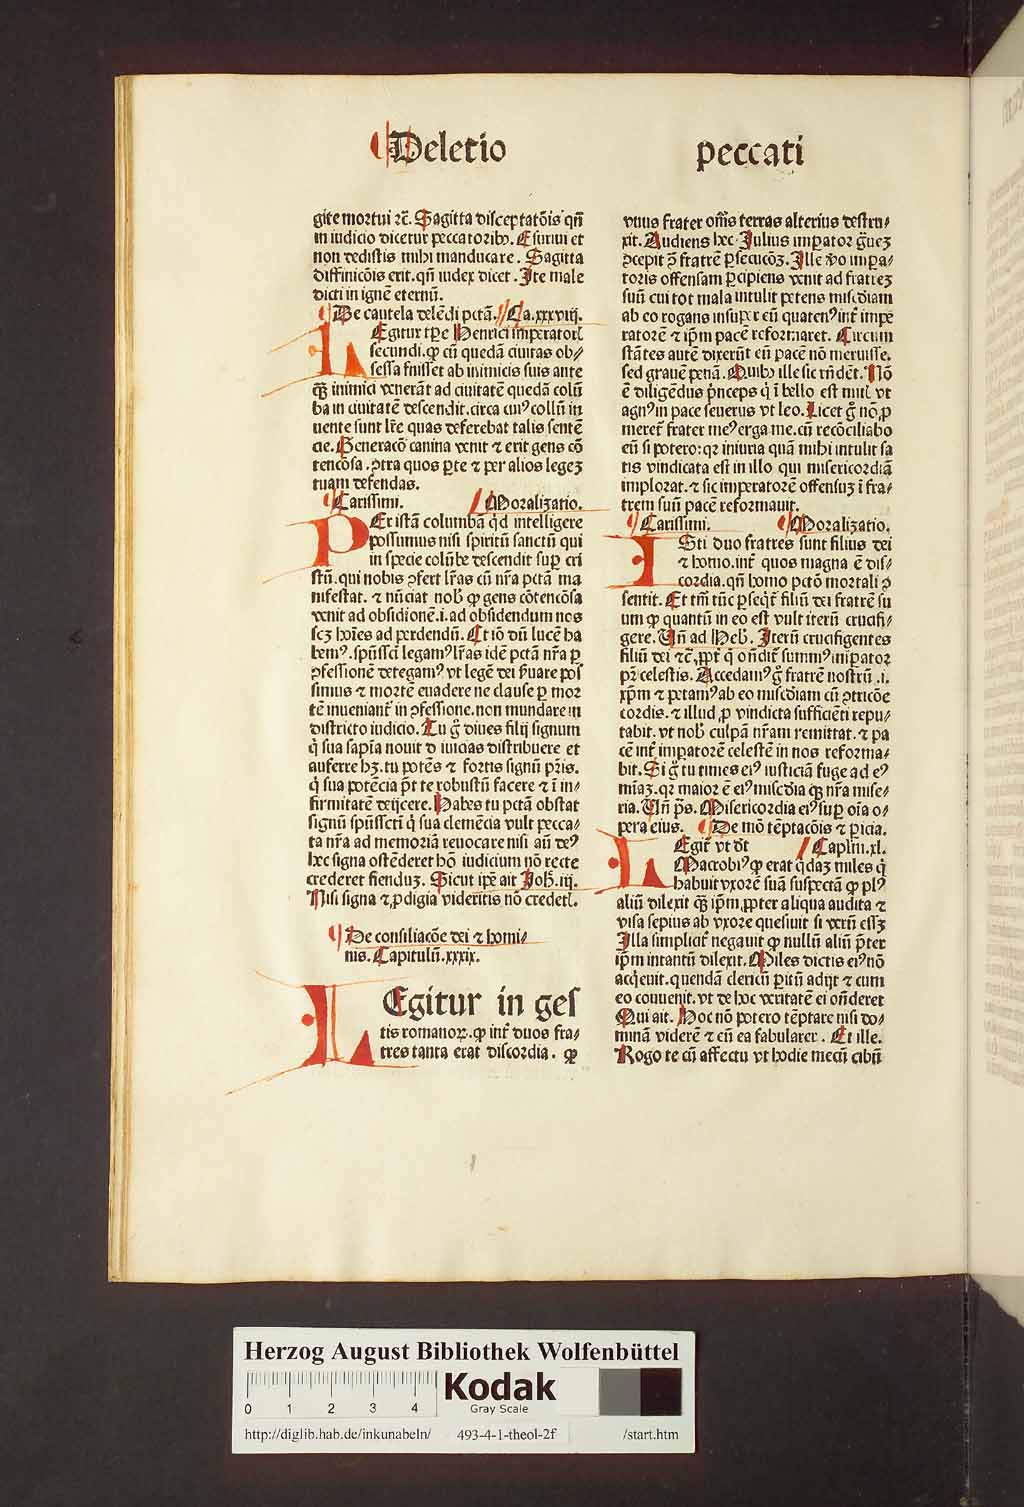 Deletio peccati
gite mortui ⁊c̄. Sagitta disceptatōis qn̄
in iudicio dicetur peccatoribꝰ. Esuriui et
non dedistis mihi manducare. Sagitta
diffinicōis erit. qn̄ iudex dicet. Ite male
dicti in ignē eternū.
De cautela delēdi pctā. Ca. xxxviij.
LEgitur tp̄e Henrici imperatorl̄
secundi. ꝙ cū quedā ciuitas ob⸗
sessa fuisset ab inimicis suis ante
qꝫ inimici venerāt ad ciuitatē quedā colū
ba in ciuitatē descendit. circa cuiꝰ collū in
uente sunt lr̄e quas deferebat talis sentē
cie. Generacō canina venit ⁊ erit gens cō
tencōsa. ꝯtra quos ꝑte ⁊ per alios legeꝫ
tuam defendas.
Carissimi. Moralizatio.
PEr istā columbā qͥd intelligere
possumus nisi spiritū sanctū qui
in specie colūbe descendit suꝑ cri
stū. qui nobis ꝯfert lr̄as cū nr̄a pctā ma
nifestat. ⁊ nūciat nob̄ ꝙ gens cōtencōsa
venit ad obsidionē .i. ad obsidendum nos
scꝫ hoīes ad perdendū. Et iō dū lucē ha
bemꝰ. spūssc̄i legamꝰ lr̄as idē pctā nr̄a ꝑ
ꝯfessionē detegamꝰ vt legē dei ẜuare pos
simus ⁊ mortē euadere ne clause ꝑ mor
tē inueniant̄ in ꝯfessione. non mundare in
districto iudicio. Tu ḡ diues filij signum
qͥ sua sapīa nouit d iuicias distribuere et
auferre hꝫ. tu potēs ⁊ fortis signū pr̄is.
qͥ sua potēcia pt̄ te robustū facere ⁊ ī in⸗
firmitatē deijcere. Habes tu pctā obstat
signū spūssc̄ti qͥ sua demēcia vult pecca⸗
ta nr̄a ad memoriā reuocare nisi aū deꝰ
hec signa ostēderet hō iudicium nō recte
crederet fienduꝫ. Sicut ip̄e ait Joh̄. iij.
Nisi signa ⁊ ꝓdigia videritis nō credetl̄.
De consiliacōe dei ⁊ homi⸗
nis. Capitulū. xxxix.
LEgitur in ges
tis romanoꝝ. ꝙ int̄ duos fra⸗
tres tanta erat discordia. ꝙ
vnus frater om̄s terras alterius destru⸗
xit. Audiens hec Julius imp̄ator ḡueꝫ
ꝯcepit ꝯ̄ fratrē ꝑsecucōꝫ. Ille v̄o imꝑa⸗
toris offensam ꝑcipiens venit ad fratreꝫ
suū cui tot mala intulit petens misc̄diam
ab eo rogans insuꝑ er eū quatenꝰ int̄ impē
ratorē ⁊ ip̄m pacē reformaret. Circum
stātes autē dixerūt eū pacē nō meruisse.
sed grauē penā. Quibꝰ ille sic rn̄dēt. Nō
ē diligēdus pͥnceps qͥ ī bello est mitl̄ vt
agnꝰ in pace seuerus vt leo. Licet ḡ nō ꝓ
meret̄ frater meꝰ erga me. cū recōciliabo
eū si potero: qr iniuria quā mihi intulit sa
tis vindicata est in illo qui misericordiā
implorat. ⁊ sic imperatorē offensuꝫ ī fra⸗
trem suū pacē reformauit.
Carissimi. Moralizatio.
ISti duo fratres sunt filius dei
⁊ homo. int̄ quos magna ē dis⸗
cordia. qn̄ homo pctō mortali ꝯ
sentit. Et tm̄ tūc ꝑseqͥt̄ filiū dei fratrē su
um ꝙ quantū in eo est vult iterū crucifi⸗
gere. Vn̄ ad Heb̄. Iterū crucifigentes
filiū dei ⁊c̄. ꝓpt̄ qͥ on̄dit̄ summꝰ inꝑator
pr̄ celestis. Accedamꝰ ḡ fratrē nostrū .i.
xp̄m ⁊ petamꝰ ab eo misc̄diam cū ꝯtricōe
cordis. ⁊ illud ꝓ vindicta sufficiēti repu⸗
tabit. vt nob̄ culpā nr̄am remittat. ⁊ pa
cē int̄ imꝑatorē celestē in nos reforma⸗
bit. Si ḡ tu times eiꝰ iusticiā fuge ad eꝰ
mīaꝫ. qr maior ē eiꝰ misc̄dia qꝫ nr̄a mise⸗
ria. Vn̄ pͥs. Misericordia eiꝰ suꝑ oīa o
pera eius. De mō tēptacōis ⁊ ꝑicia.
LEgit̄ vt dt̄ Capl̄m. xl.
Macrobiꝰ ꝙ erat qͥdaꝫ miles qͥ
habuit vxorē suā suspectā ꝙ plꝰ
aliū dilexit qꝫ ip̄m ꝓpter aliqua audita ⁊
visa sepius ab vxore quesiuit si verū essꝫ
Illa simplicit̄ negauit ꝙ nullū aliū p̄ter
ip̄m intantū dilexit. Miles dictis eiꝰ nō
acqͥeuit. quendā clericū ꝑitū adijt ⁊ cum
eo conuenit. vt de hoc veritatē ei on̄deret
Qui ait. Hoc nō potero tēptare nisi do⸗
minā viderē ⁊ cū ea fabularer. Et ille.
Rogo te cū affectu vt hodie mecū cibū
Herzog August Bibliothek Wolfenbüttel
0 1 2 3 4
Kodak
Gray Scale
http://diglib.hab.de/inkunabeln/ 493-4-1-theol-2f /start.htm